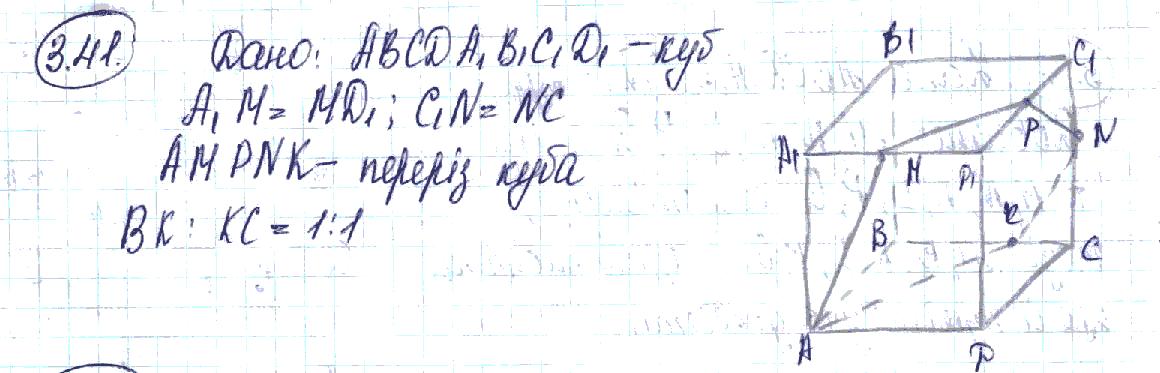 3.41. Дано: ABCDA₁B₁C₁D₁ – куб
A₁M = MD₁; C₁N = NC
AMPNK – переріз куба
BK : KC = 1:1
B₁
C₁
P
N
A₁
M
D₁
B
K
C
A
D